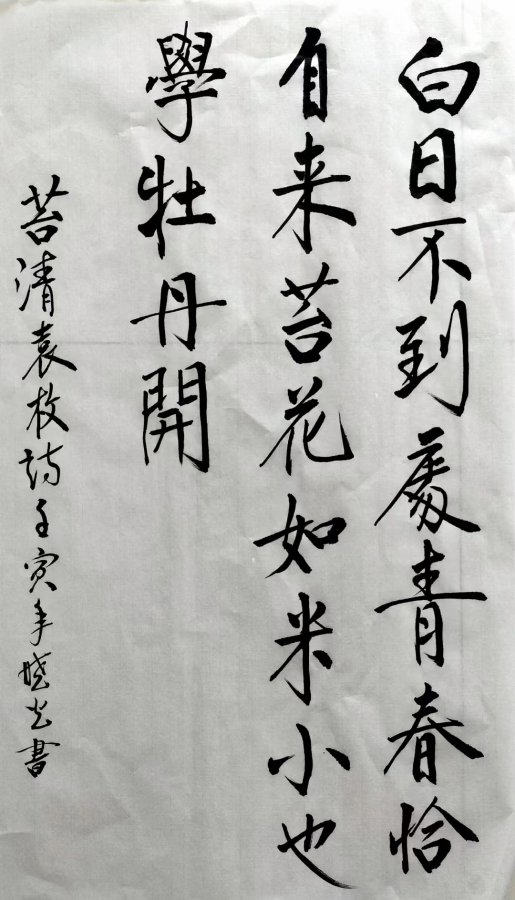 白日不到處青春恰
自来苔花如米小也
學牡丹開
苔清袁枚詩壬寅年晓光書